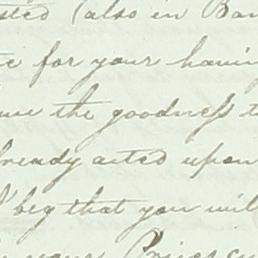 sted (also in Ban
te for your havin
me the goodness t
lready acted upon
I beg that you wil
your Prices cu